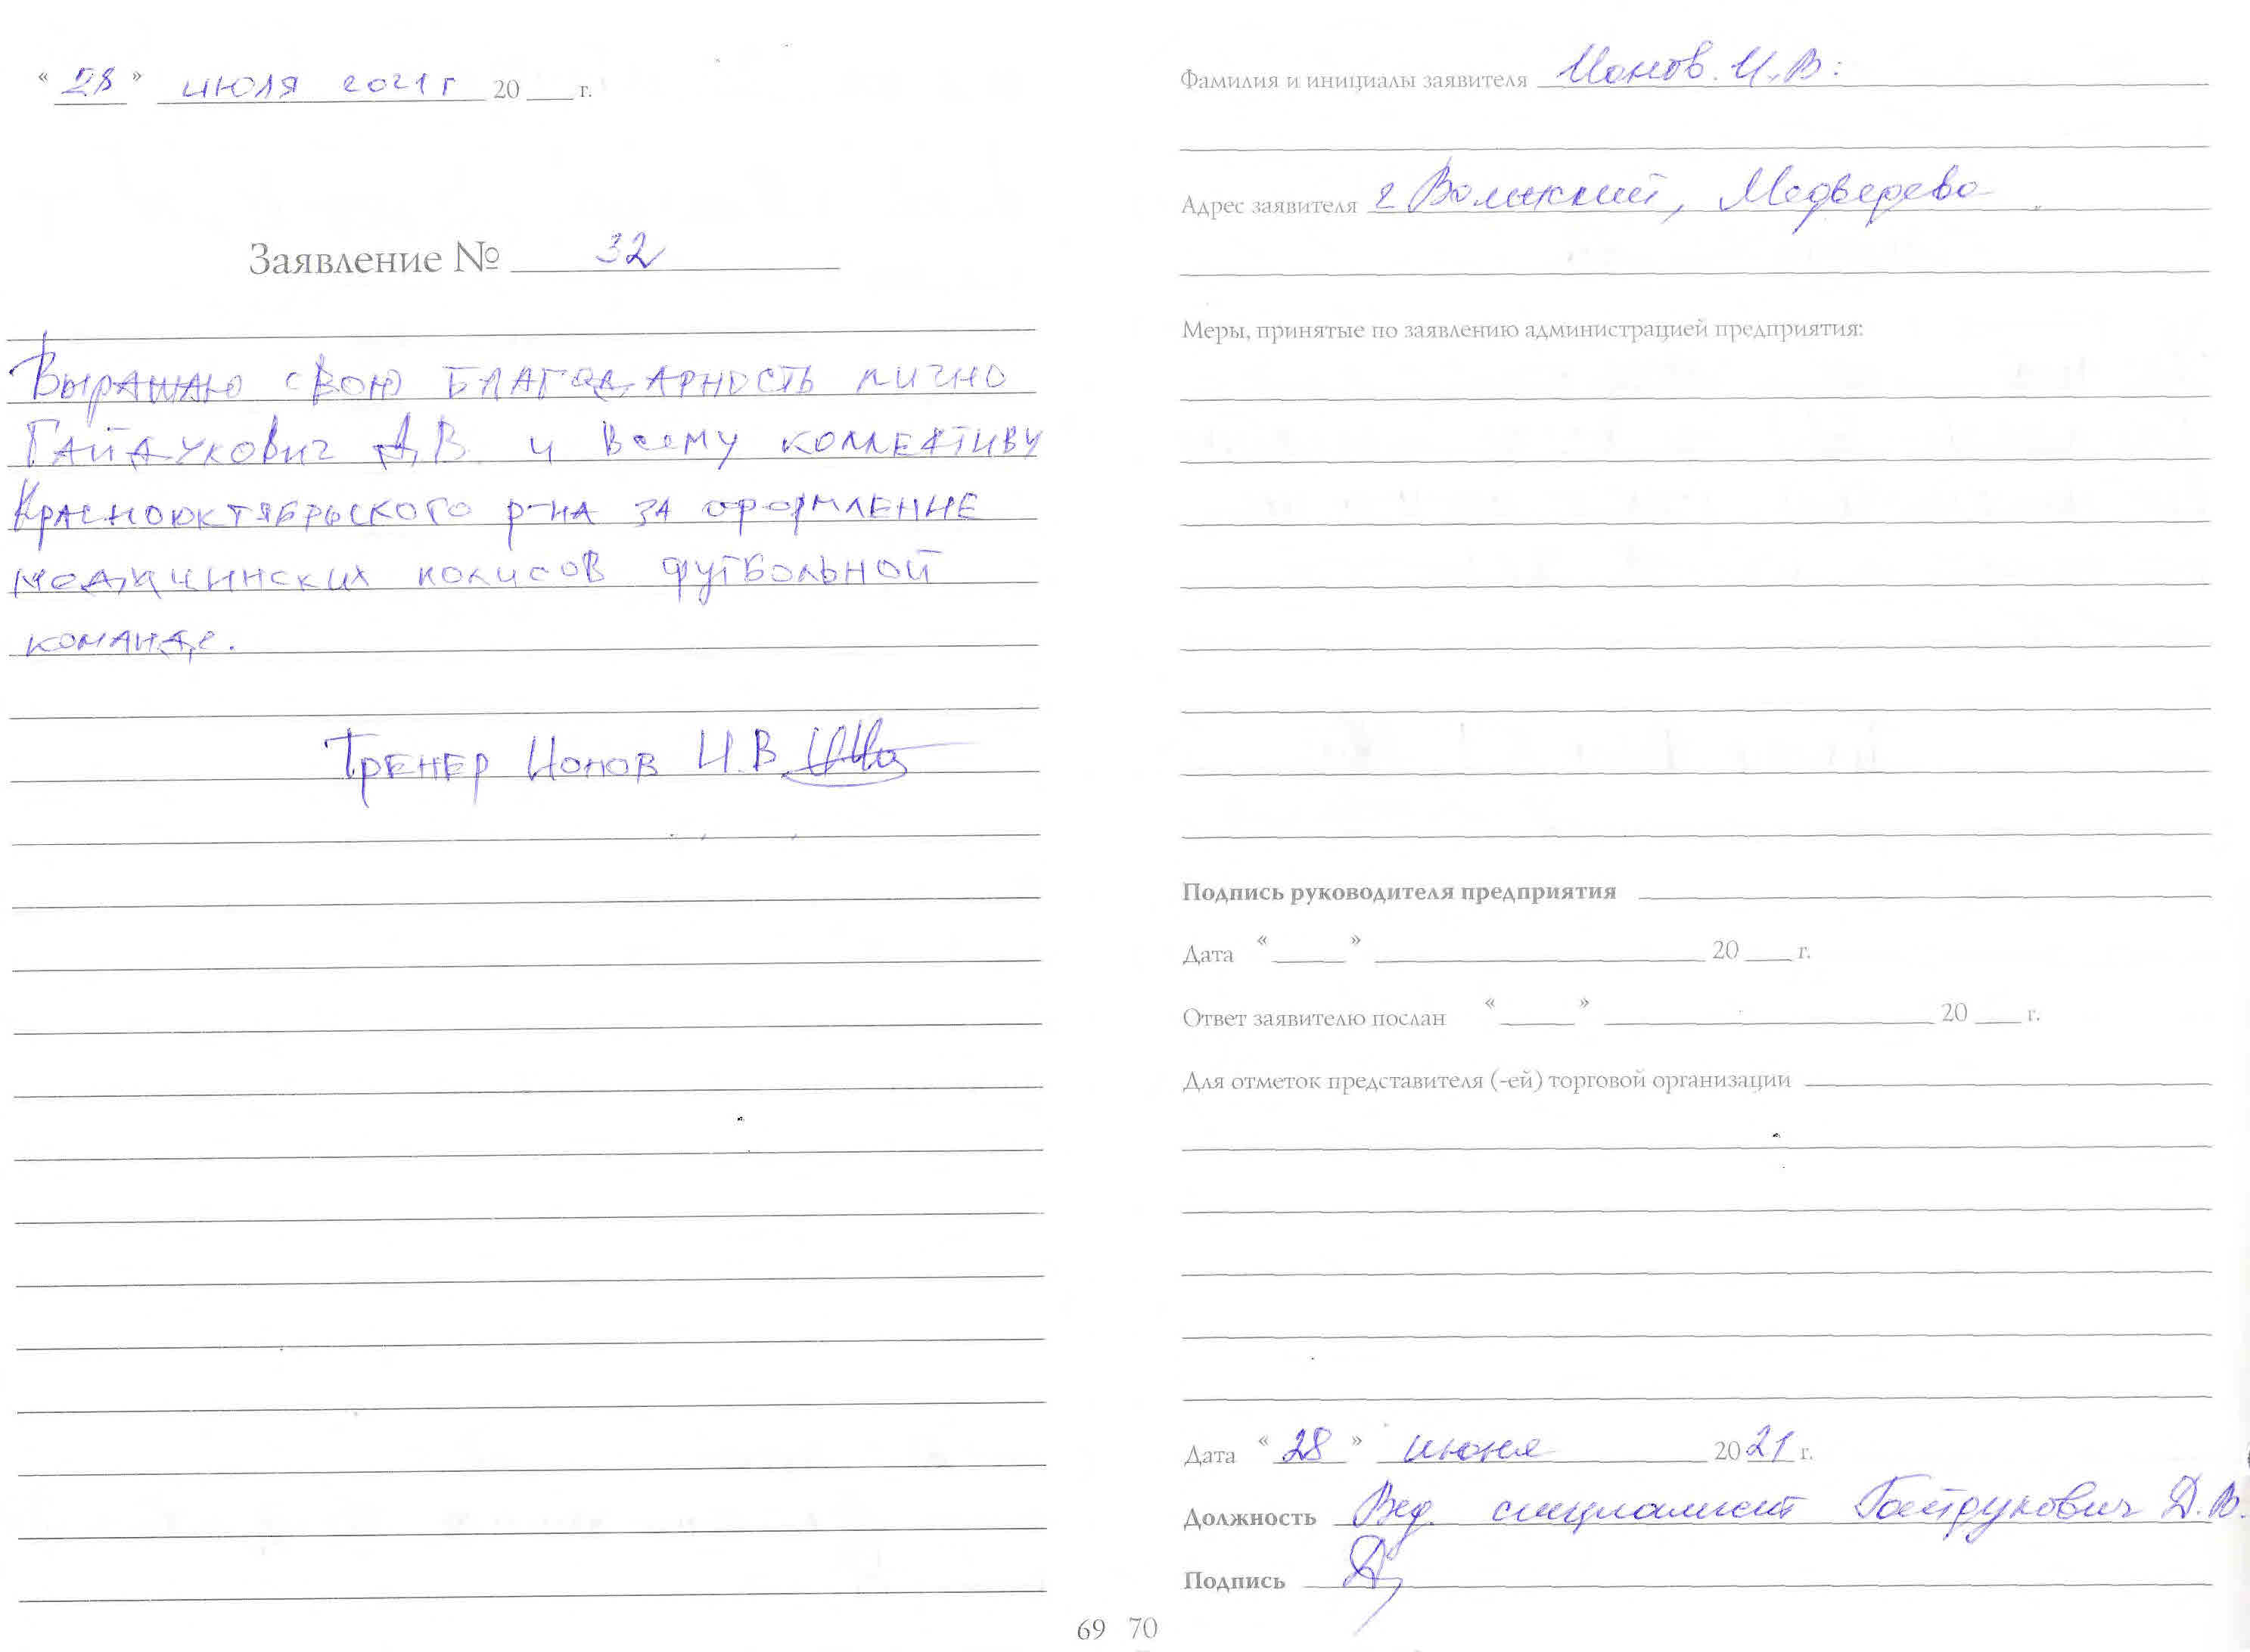 « 28 » июля 2021 г 20 ___ г.
Заявление № 32
Выражаю свою благодарность лично
Гайдукович Д.В. и всему коллективу
Краснооктябрьского р-на за оформление
медицинских полисов футбольной
команде.
Тренер Ионов И.В.
Фамилия и инициалы заявителя Ионов И.В.
Адрес заявителя г Волжский, Медведева
Меры, принятые по заявлению администрацией предприятия:
Подпись руководителя предприятия
Дата « ___ » ___ 20 ___ г.
Ответ заявителю послан « ___ » ___ 20 ___ г.
Для отметок представителя (-ей) торговой организации
Дата « 28 » июня 2021 г.
Должность Вед. специалист Гайдукович Д.В.
Подпись
69 70